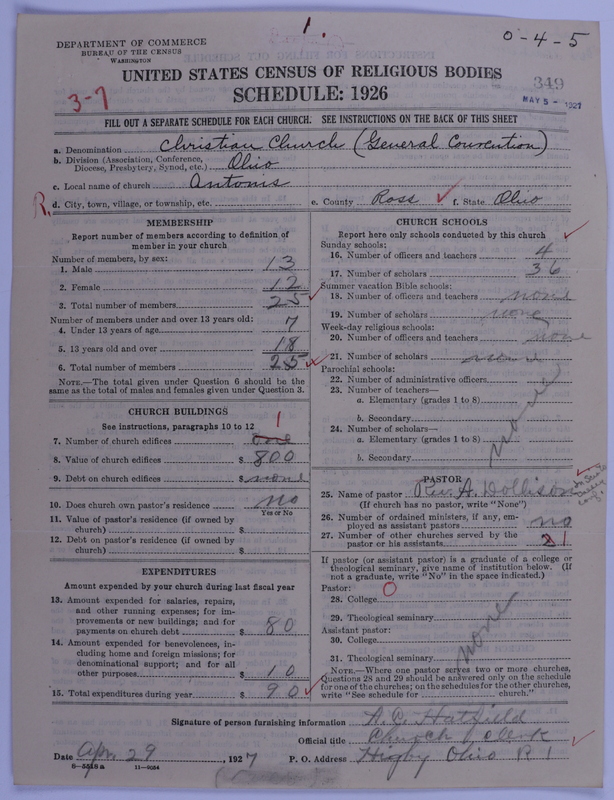 1.
0-4-5
DEPARTMENT OF COMMERCE
BUREAU OF THE CENSUS
WASHINGTON
UNITED STATES CENSUS OF RELIGIOUS BODIES
SCHEDULE: 1926
3-7
349
MAY 5 - 1927
FILL OUT A SEPARATE SCHEDULE FOR EACH CHURCH. SEE INSTRUCTIONS ON THE BACK OF THIS SHEET
a. Denomination Christian Church (General Convention)
b. Division (Association, Conference, Diocese, Presbytery, Synod, etc.) Ohio
c. Local name of church Antonis
R. d. City, town, village, or township, etc. e. County Ross f. State Ohio
MEMBERSHIP
Report number of members according to definition of
member in your church
Number of members, by sex:
1. Male 13
2. Female 12
3. Total number of members 25
Number of members under and over 13 years old:
4. Under 13 years of age 7
5. 13 years old and over 18
6. Total number of members 25
NOTE.—The total given under Question 6 should be
same as the total of males and females given under Question 3.
CHURCH BUILDINGS
See instructions, paragraphs 10 to 12
7. Number of church edifices one 1
8. Value of church edifices $ 800
9. Debt on church edifices $ none
10. Does church own pastor's residence no
Yes or No
11. Value of pastor's residence (if owned by
church) $
12. Debt on pastor's residence (if owned by
church) $
EXPENDITURES
Amount expended by your church during last fiscal year
13. Amount expended for salaries, repairs,
and other running expenses; for im-
provements or new buildings; and for
payments on church debt $ 80
14. Amount expended for benevolences, in-
cluding home and foreign missions; for
denominational support; and for all
other purposes $ 10
15. Total expenditures during year $ 90
CHURCH SCHOOLS
Report here only schools conducted by this church
Sunday schools:
16. Number of officers and teachers 4
17. Number of scholars 36
Summer vacation Bible schools:
18. Number of officers and teachers none
19. Number of scholars none
Week-day religious schools:
20. Number of officers and teachers none
21. Number of scholars none
Parochial schools:
22. Number of administrative officers
23. Number of teachers—
a. Elementary (grades 1 to 8)
b. Secondary
24. Number of scholars—
a. Elementary (grades 1 to 8)
b. Secondary
none
PASTOR
25. Name of pastor Rev. A. Dollison
(If church has no pastor, write "None")
26. Number of ordained ministers, if any, em-
ployed as assistant pastors no
27. Number of other churches served by the
pastor or his assistants 2 1
If pastor (or assistant pastor) is a graduate of a college or
theological seminary, give name of institution below. (If
not a graduate, write "No" in the space indicated.)
Pastor: 0
28. College
29. Theological seminary
Assistant pastor:
30. College
31. Theological seminary
none
NOTE.—Where one pastor serves two or more churches,
Questions 28 and 29 should be answered only on the schedule
for one of the churches; on the schedules for the other churches,
write "See schedule for church."
Signature of person furnishing information A. C. Hatfield
Official title Church Clerk
Date Apr 29, 1927 P. O. Address Higby Ohio R 1
8-5518a 11-9054